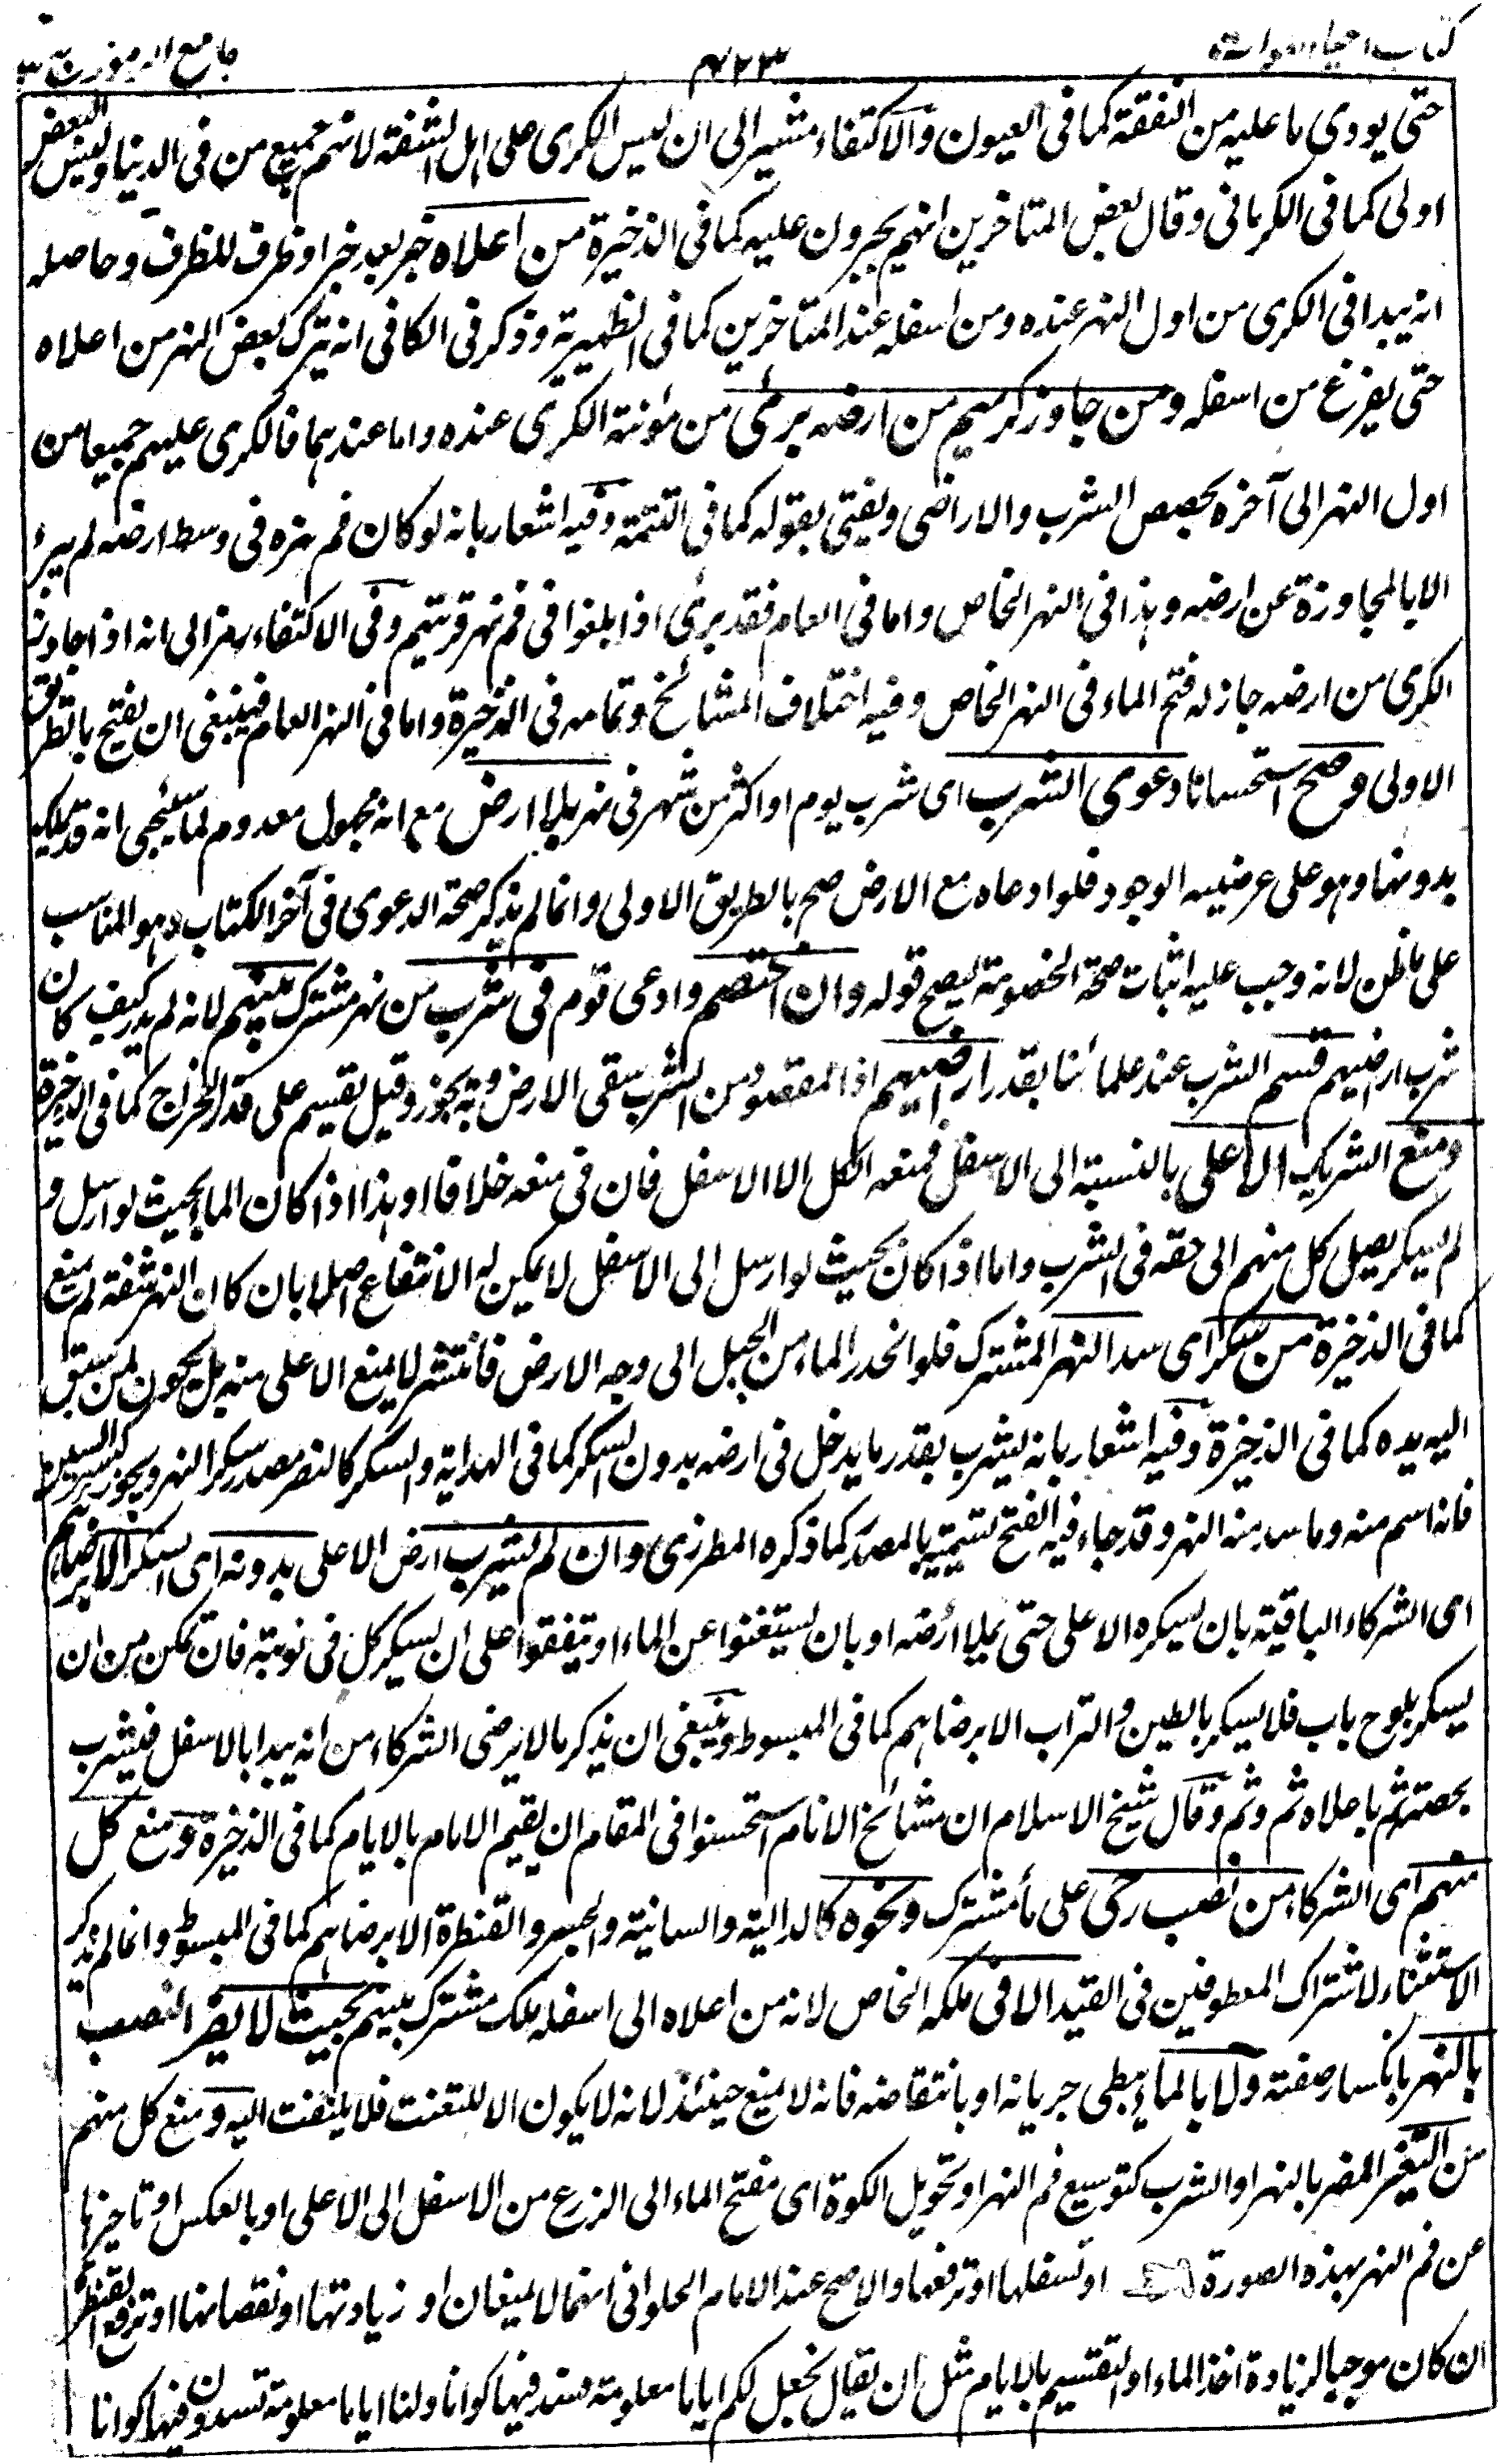 كتاب احياء الموات
٦٢٣
جامع الرموز
حتى يودى ما عليه من النفقة كما فى العيون والاكتفاء مشير الى ان ليس الكرى على اهل الشفة لانهم جميع من فى الدنيا وليس البعض
اولى كما فى الكرمانى وقال بعض المتاخرين انهم يجبرون عليه كما فى الذخيرة من اعلاه خبر بعد خبر او ظرف للظرف وحاصله
انه يبدا فى الكرى من اول النهر عنده ومن اسفله عند المتاخرين كما فى الظهيرية وذكر فى الكافى انه يترك بعض النهر من اعلاه
حتى يفرغ من اسفله ومن جاوز كريهم من ارضه برئ من مؤنة الكرى عنده واما عندهما فالكرى عليهم جميعا من
اول النهر الى آخره بحصص الشرب والاراضى ويفتى بقوله كما فى التتمة وفيه اشعار بانه لو كان فم نهره فى وسط ارضه لم يبرئ
الا بالمجاوزة عن ارضه وهذا فى النهر الخاص واما فى العام فقد برئ اذا بلغوا فى فم نهر قريتهم وفى الاكتفاء رمز الى انه اذا جاوز
الكرى من ارضه جاز له فتح الماء فى النهر الخاص وفيه اختلاف المشائخ وتمامه فى الذخيرة واما فى النهر العام فينبغى ان يفتح بالطريق
الاولى وصح استحسانا دعوى الشرب اى شرب يوم او اكثر من شهر فى نهر بلا ارض مع انه مجهول معدوم لما سيجئ انه قد يملك
بدونها وهو على عرضية الوجود فلو ادعاه مع الارض صح بالطريق الاولى وانما لم يذكر صحة الدعوى فى آخر الكتاب وهو المناسب
على ما ظن لانه وجب عليه اثبات صحة الخصومة ليصح قوله وان اختصم وادعى قوم فى شرب من نهر مشترك بينهم لانه لم يدر كيف كان
شرب اراضيهم قسم الشرب عند علمائنا بقدر اراضيهم اذ المقصود من الشرب سقى الارض وبه يجوز وقيل يقسم على قدر الخراج كما فى الذخيرة
ومنع الشريك الاعلى بالنسبة الى الاسفل فمنعه الكل الا الاسفل فان فى منعه خلافا وهذا اذا كان الماء بحيث لو ارسل و
لم يسكر يصل كل منهم الى حقه فى الشرب واما اذا كان بحيث لو ارسل الى الاسفل لا يمكن له الانتفاع اصلا بان كان النهر نشفة لم يمنع
كما فى الذخيرة من سكر اى سد النهر المشترك فلو انحدر الماء من الجبل الى وجه الارض فانتشر لا يمنع الاعلى منه بل يكون لمن سبق
اليه يده كما فى الذخيرة وفيه اشعار بانه يشرب بقدر ما يدخل فى ارضه بدون السكر كما فى الهداية والسكر كالنصر مصدر سكر النهر ويجوز كسر السين
فانه اسم منه وما سد منه النهر وقد جاء فيه الفتح تسمية بالمصدر كما ذكره المطرزى وان لم يشرب ارض الاعلى بدونه اى السكر الا برضاهم
اى الشركاء الباقية بان يسكره الاعلى حتى يملا ارضه او بان يستغنوا عن الماء او يتفقوا على ان يسكر كل فى نوبته فان تمكن من ان
يسكر بلوح باب فلا يسكر بالطين والتراب الا برضاهم كما فى المبسوط وينبغى ان يذكر ما لا يرضى الشركاء من انه يبدا بالاسفل فيشرب
بحصته ثم باعلاه ثم وثم وقال شيخ الاسلام ان مشائخ الانام استحسنوا فى المقام ان يقيم الامام بالايام كما فى الذخيرة ومنع كل
منهم اى الشركاء من نصب رحى على ماء مشترك ونحوه كالدالية والسانية والجسر والقنطرة الا برضاهم كما فى المبسوط وانما لم يذكر
الاستثناء لاشتراك المعطوفين فى القيد الا فى ملكه الخاص لانه من اعلاه الى اسفله ملك مشترك بينهم بحيث لا يضر النصب
بالنهر بانكسار صفته ولا بالماء ببطى جريانه او بانتقاضه فانه لا يمنع حينئذ لانه لا يكون الا للتعنت فلا يلتفت اليه ومنع كل منهم
من التغير المضر بالنهر او الشرب كتوسيع فم النهر او تحويل الكوة اى مفتح الماء الى الزرع من الاسفل الى الاعلى او بالعكس او تاخيرها
عن فم النهر بهذه الصورة او تسفلها او ترفعها والاصح عند الامام الحلوانى انهما لا يمنعان او زيادتها او نقصانها او ترفع القنطرة
ان كان موجبا لزيادة اخذ الماء او التقسيم بالايام مثل ان يقال نجعل لكم اياما معلومة نسد فيها كوانا ولنا اياما معلومة تسدون فيها كوانا